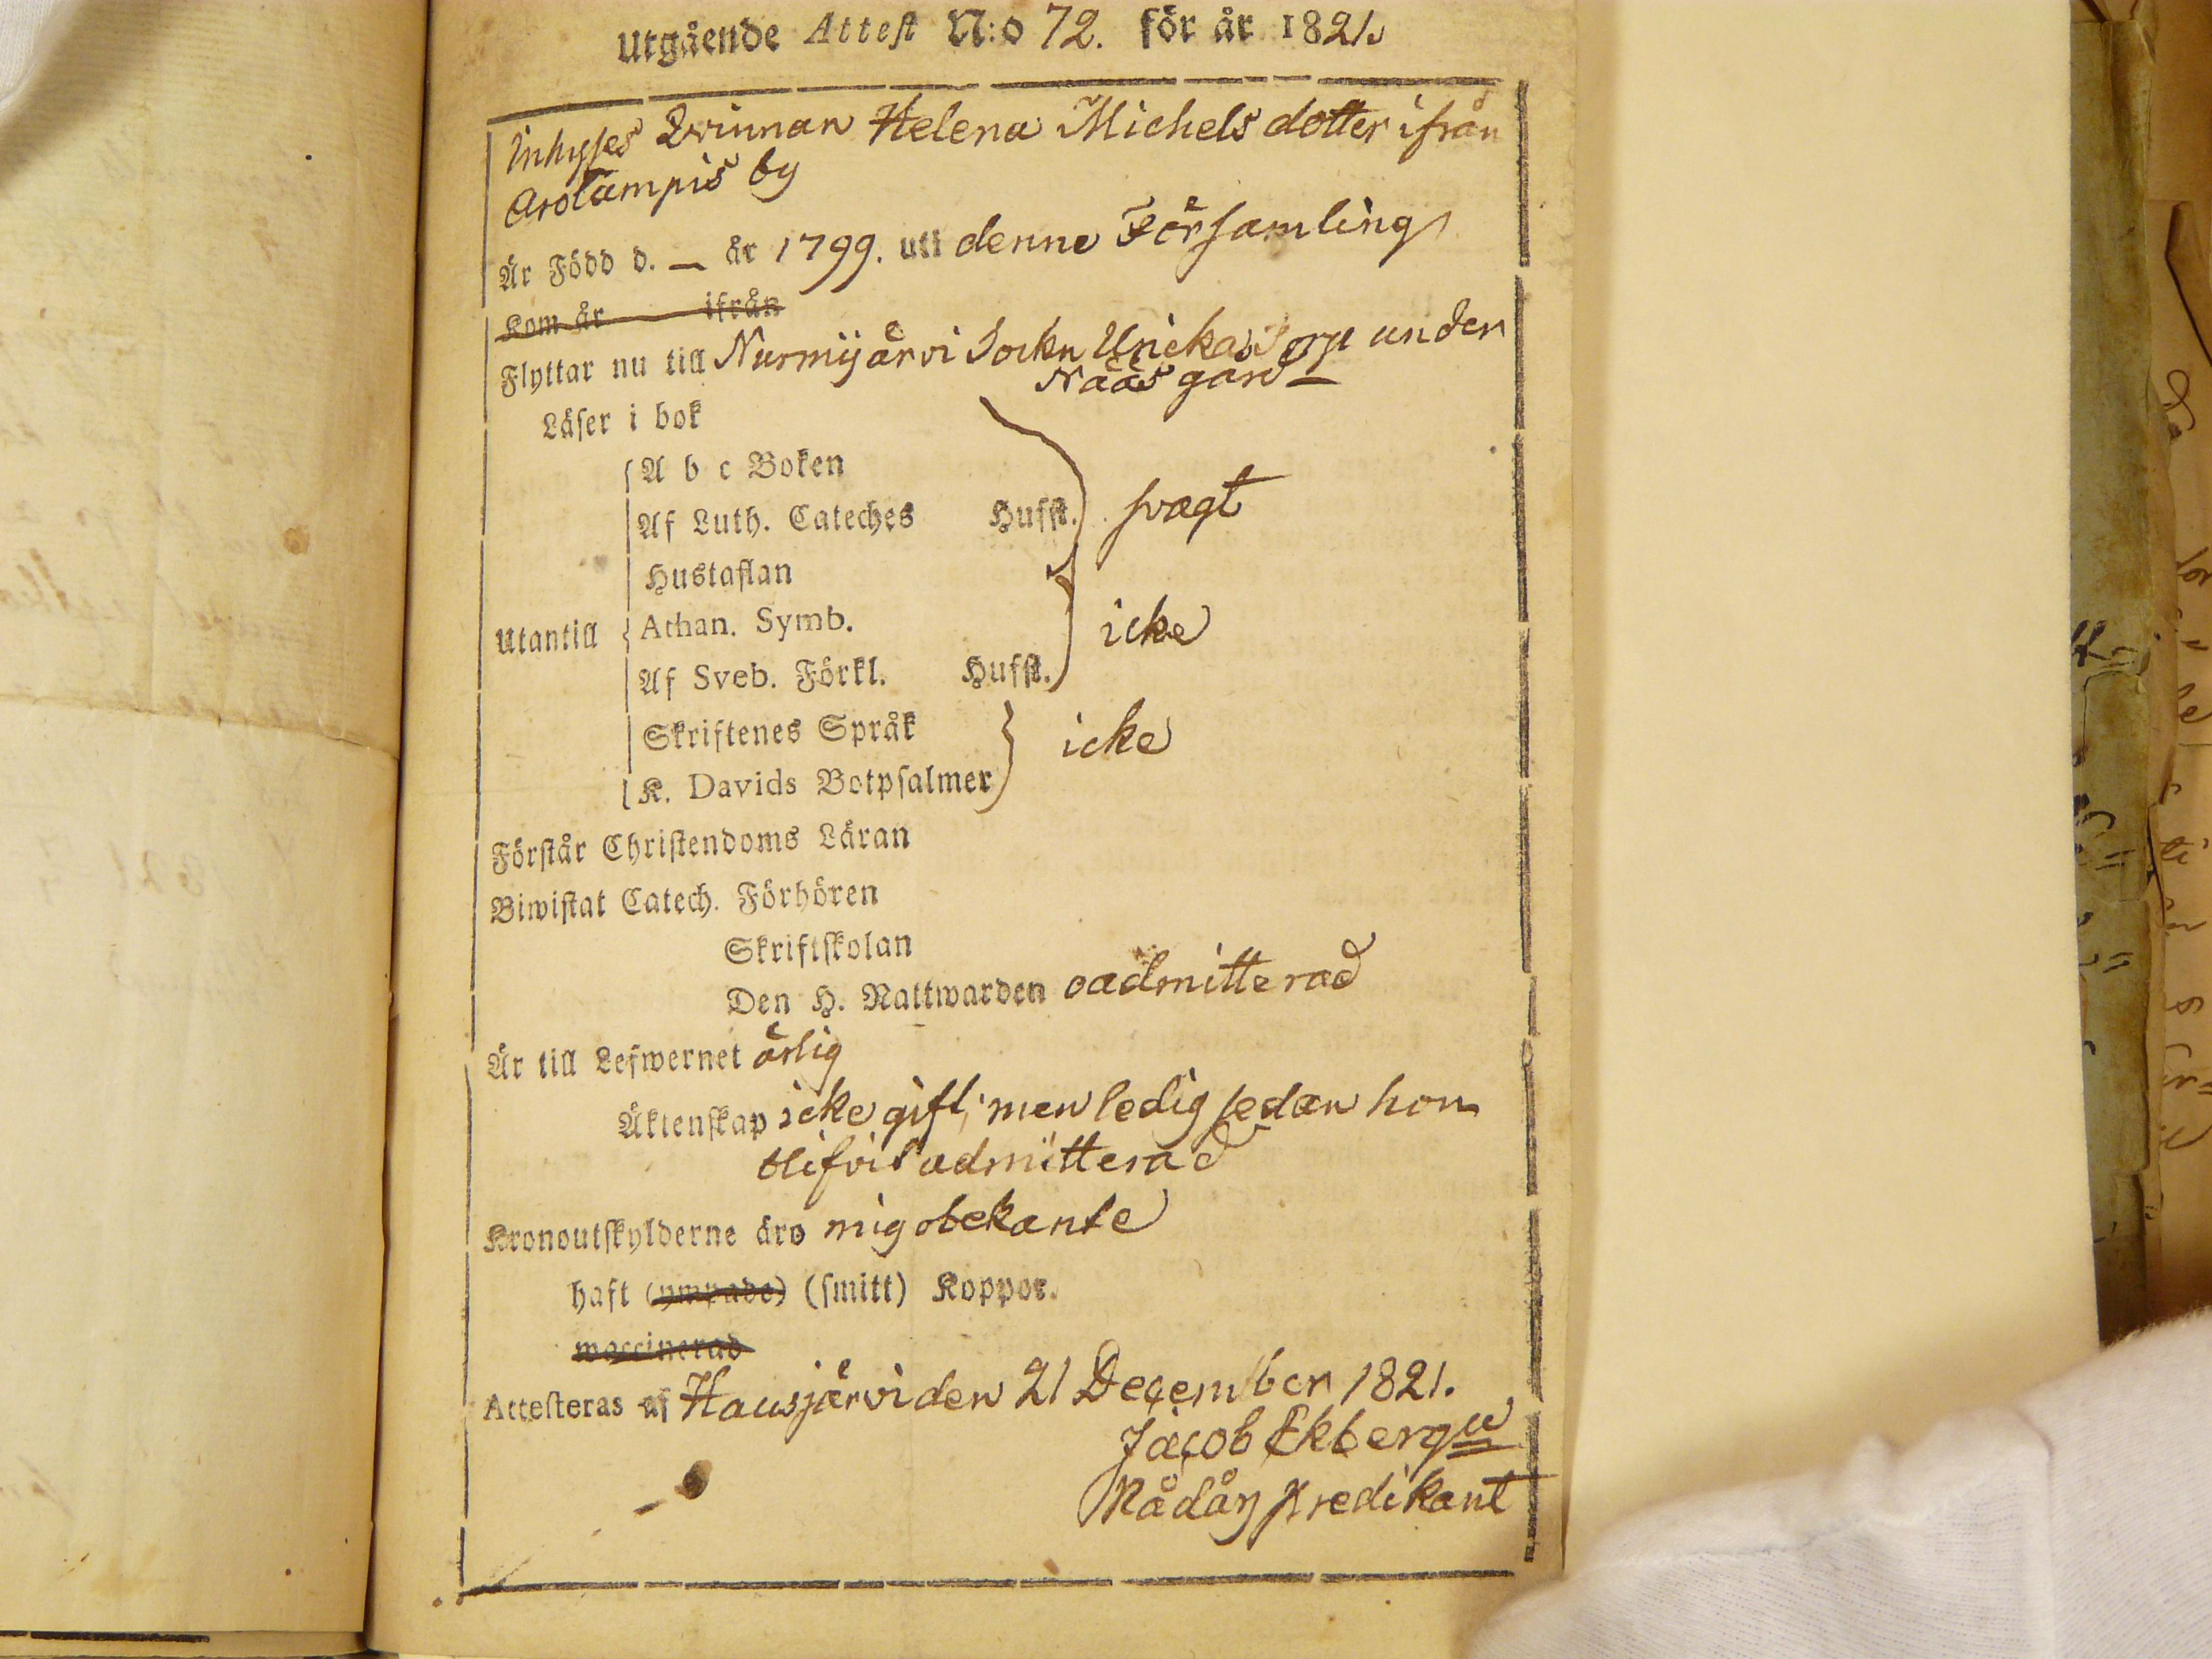 Utgående Attest N:o 72. för år 1821.
Inhyses Qvinnan Helena Michels dotter ifrån
Arolampis by
Är Född d. — år 1799. uti denne Församling
Kom år ifrån
Flyttar nu till Nurmijärvi Sockn under
Nääs gård —
Läser i bok
A b c Boken
Af Luth. Cateches Hufst. svagt
Hustaflan
Utantill Athan. Symb. icke
Af Sveb. Förkl. Hufst.
Skriftenes Språk icke
K. Davids Botpsalmer
Förstår Christendoms Läran
Biwistat Catech. Förhören
Skriftskolan
Den H. Nattwarden oadmitterad
Är till Lefwernet ärlig
Äktenskap icke gift, men ledig sedan hon
blifvit admitterad
Kronoutskylderne äro mig obekante
haft (ympade) (smitt) Koppor.
waccinerad
Attesteras af Hausjärvi den 21 December 1821.
Jacob Ekberg
Predikant